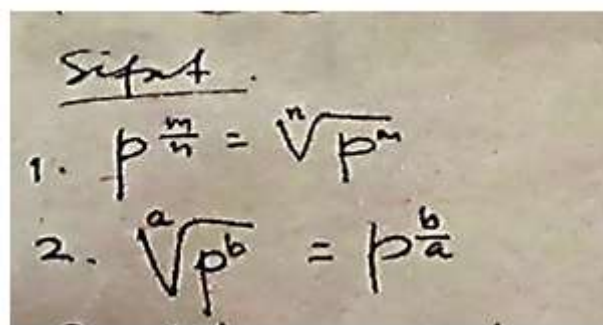 Sifat.
1. p^{\frac{m}{n}} = \sqrt[n]{p^m}
2. \sqrt[a]{p^b} = p^{\frac{b}{a}}